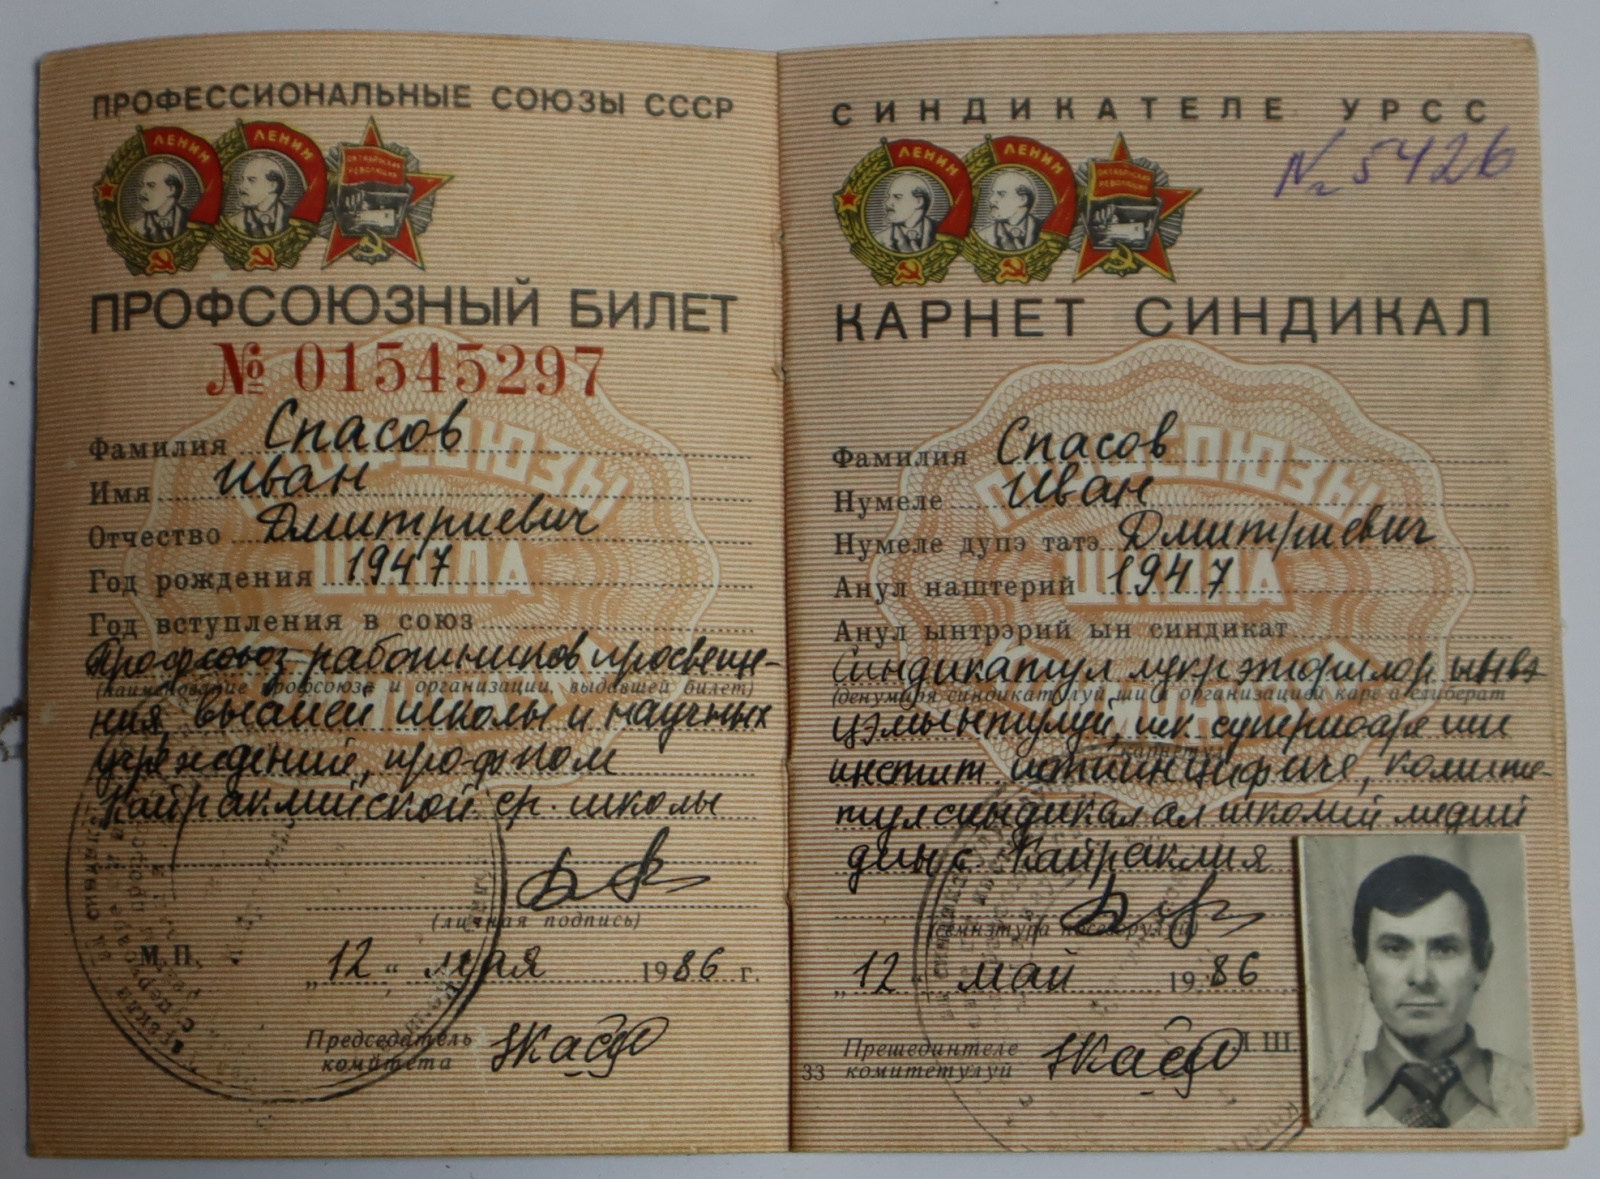 ПРОФЕССИОНАЛЬНЫЕ СОЮЗЫ СССР
ЛЕНИН ЛЕНИН ОКТЯБРЬСКАЯ РЕВОЛЮЦИЯ
ПРОФСОЮЗНЫЙ БИЛЕТ
№ 01545297
ПРОФСОЮЗЫ
ШКОЛА
Фамилия Спасов
Имя Иван
Отчество Дмитриевич
Год рождения 1947
Год вступления в союз
Профсоюз работников просвеще-
(наименование профсоюза и организации, выдавшей билет)
ния, высшей школы и научных
учреждений, профком
Кайраклийской ср. школы
(личная подпись)
М. П. „12" мая 1986 г.
Председатель
комитета
СИНДИКАТЕЛЕ УРСС
№ 5426
ЛЕНИН ЛЕНИН ОКТЯБРЬСКАЯ РЕВОЛЮЦИЯ
КАРНЕТ СИНДИКАЛ
ПРОФСОЮЗЫ
ШКОЛА
КОММУНИЗМА
Фамилия Спасов
Нумеле Иван
Нумеле дупэ татэ Дмитриевич
Анул наштерий 1947
Анул ынтрэрий ын синдикат
Синдикатул лукрэторилор ынвэ
(денумиря синдикатулуй ши а организацией каре а елиберат
цэмынтулуй, шк. супериоаре ши
карнетул)
инстит. штиинцифиче, комите-
тул синдикал ал школий медий
дин с. Кайраклия
(семнэтура посесорулуй)
„12 май 1986
Прешединтеле Л. Ш.
33 комитетулуй